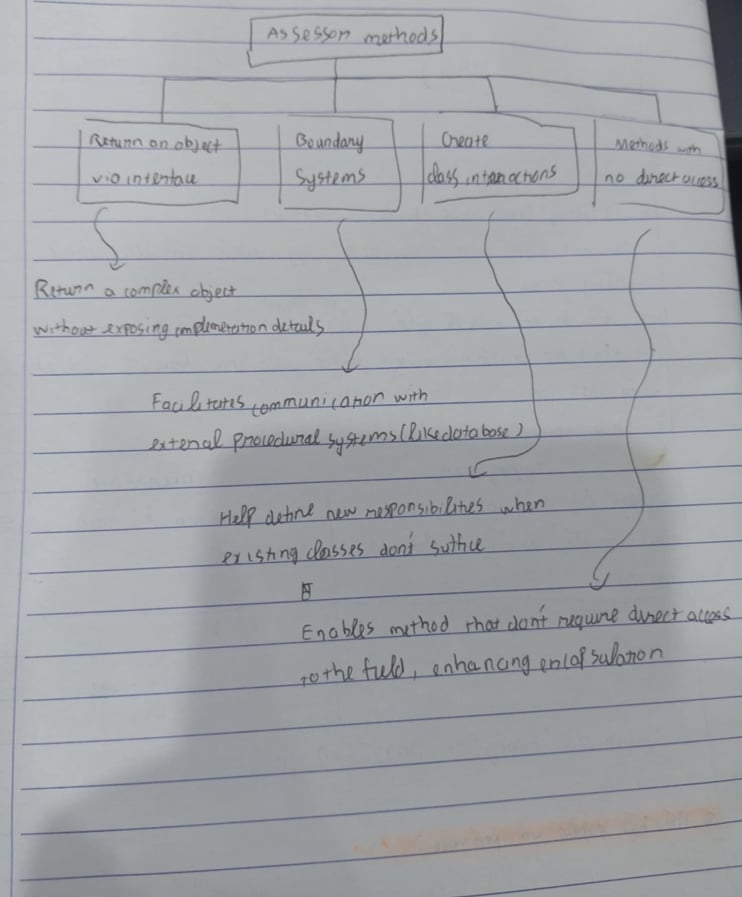 Assessor methods
Return an object
via interface
Boundary
Systems
Create
class interactions
Methods with
no direct access
Return a complex object
without exposing implimeration details
Facilitates communication with
extenal procedural systems (like database)
Help define new responsibilites when
existing classes don't suffice
Enables method that don't require direct access
to the field, enhancing encapsulation